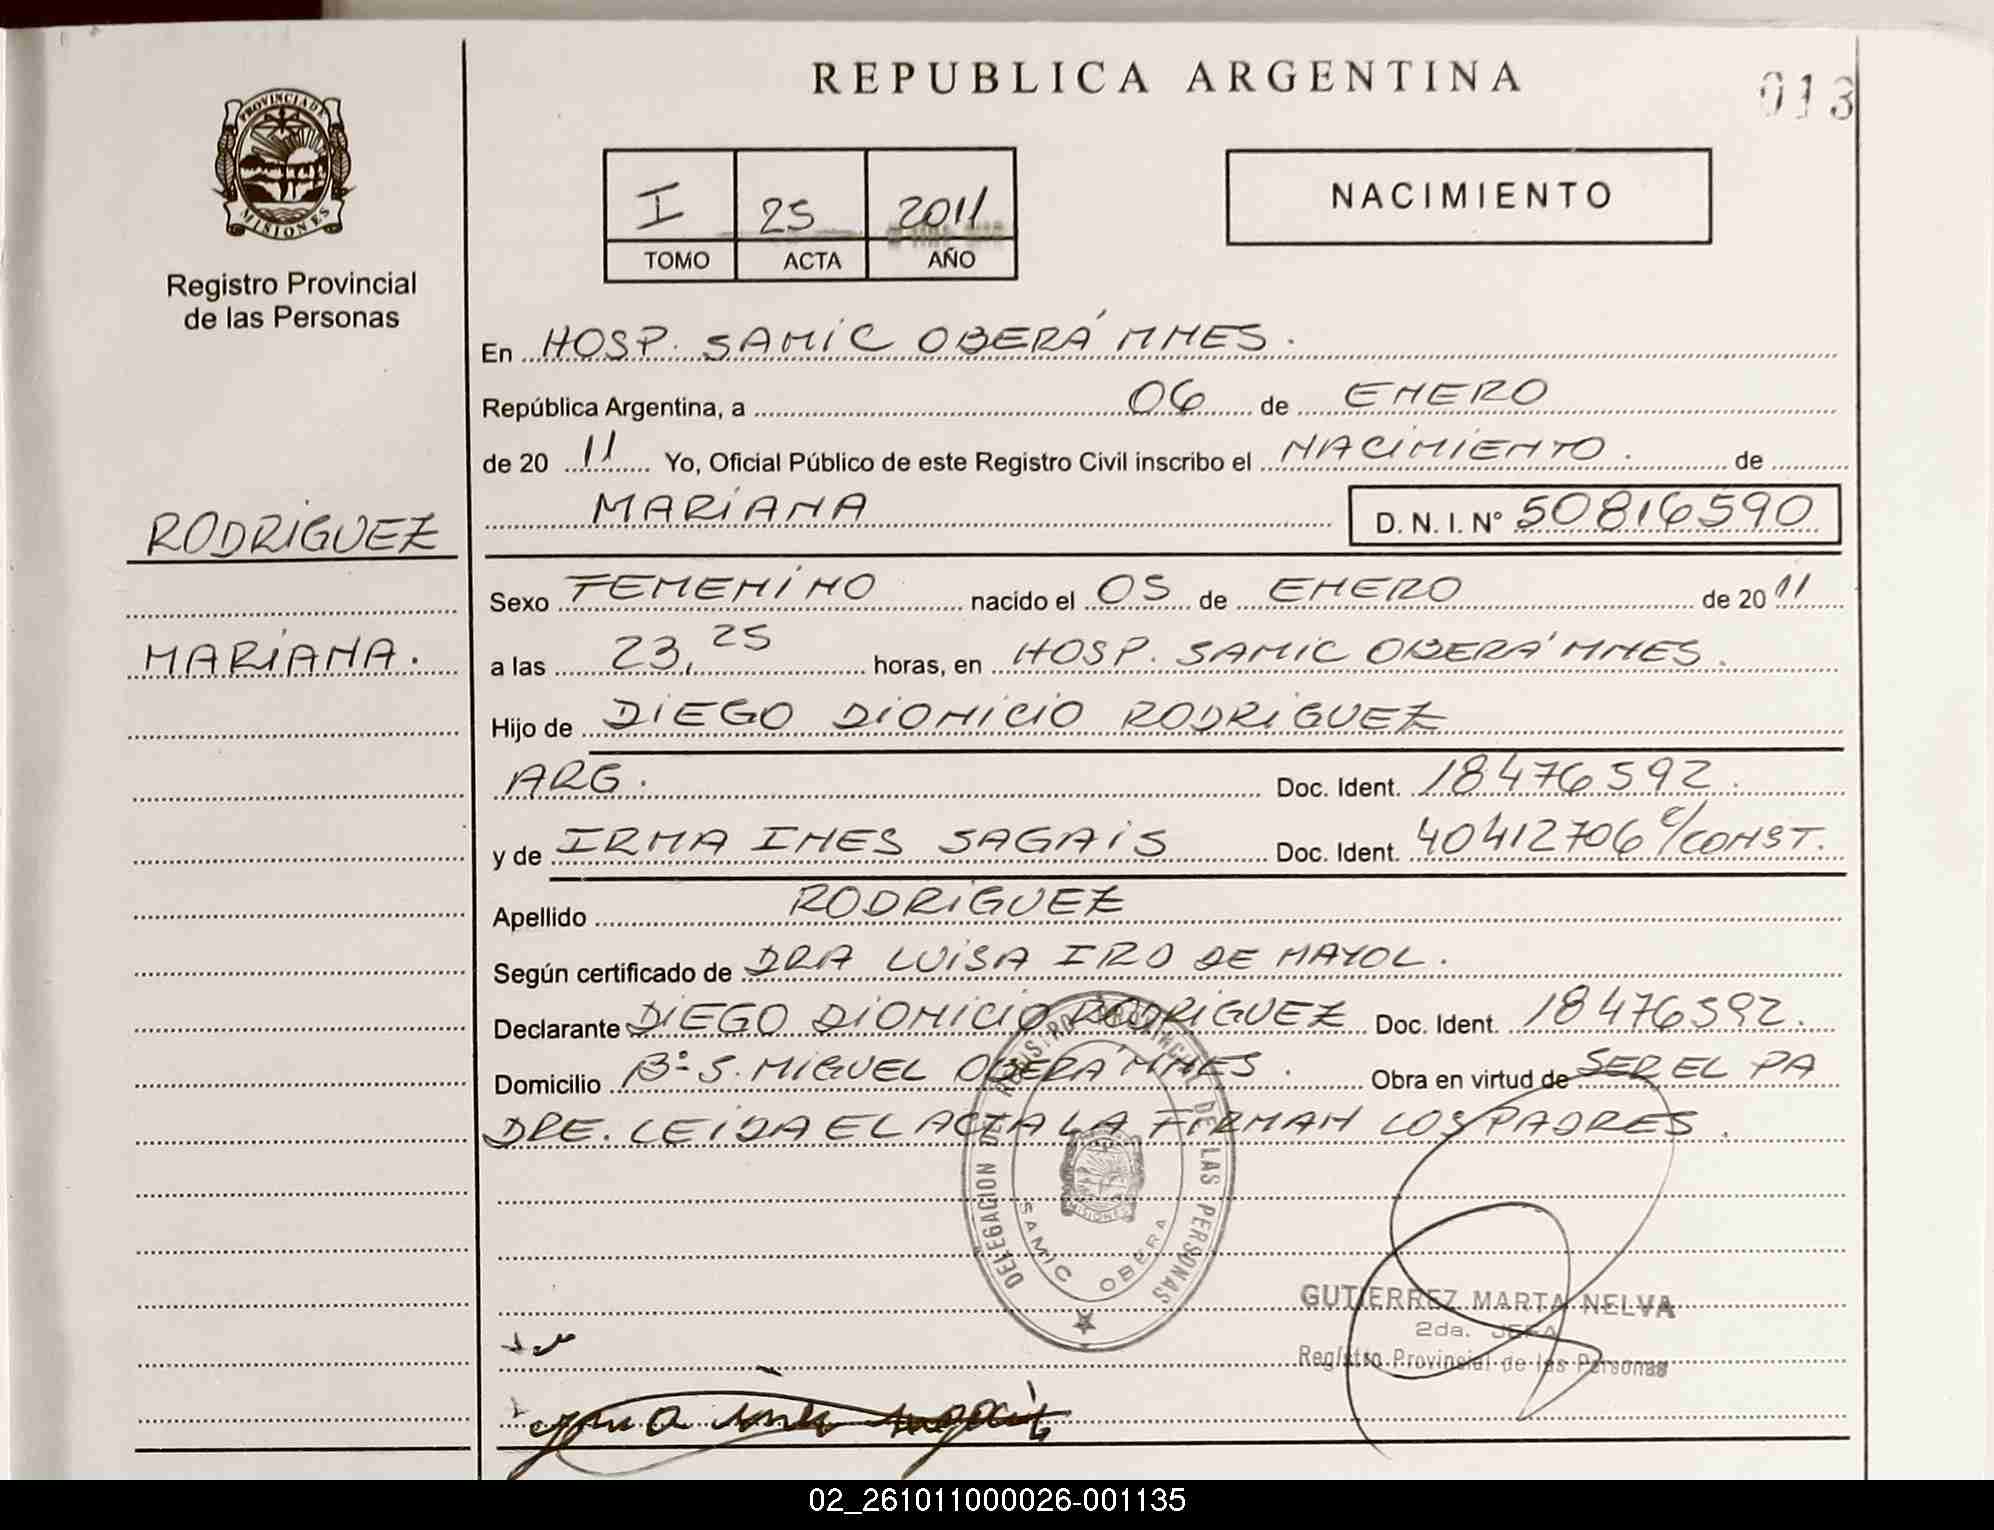 REPUBLICA ARGENTINA
013
PROVINCIA DE
MISIONES
Registro Provincial
de las Personas
I 25 2011
TOMO ACTA AÑO
NACIMIENTO
En HOSP. SAMIC OBERÁ MNES.
República Argentina, a 06 de ENERO
de 20 11 Yo, Oficial Público de este Registro Civil inscribo el NACIMIENTO. de
MARIANA D. N. I. N° 50816590
RODRIGUEZ
MARIANA.
Sexo FEMENINO nacido el 05 de ENERO de 20 11
a las 23,25 horas, en HOSP. SAMIC OBERÁ MNES.
Hijo de DIEGO DIONICIO RODRIGUEZ
ARG. Doc. Ident. 18476592.
y de IRMA INES SAGAIS Doc. Ident. 40412706 c/CONST.
Apellido RODRIGUEZ
Según certificado de DRA LUISA IRO DE MAYOL.
Declarante DIEGO DIONICIO RODRIGUEZ Doc. Ident. 18476592.
Domicilio B° S. MIGUEL OBERÁ MNES. Obra en virtud de SER EL PA
DRE. LEIDA EL ACTA LA FIRMAN LOS PADRES.
DELEGACION DEL REGISTRO PROVINCIAL DE LAS PERSONAS
MISIONES
SAMIC OBERA
GUTIERREZ MARTA NELVA
2da. JEFA
Registro Provincial de las Personas
02_261011000026-001135